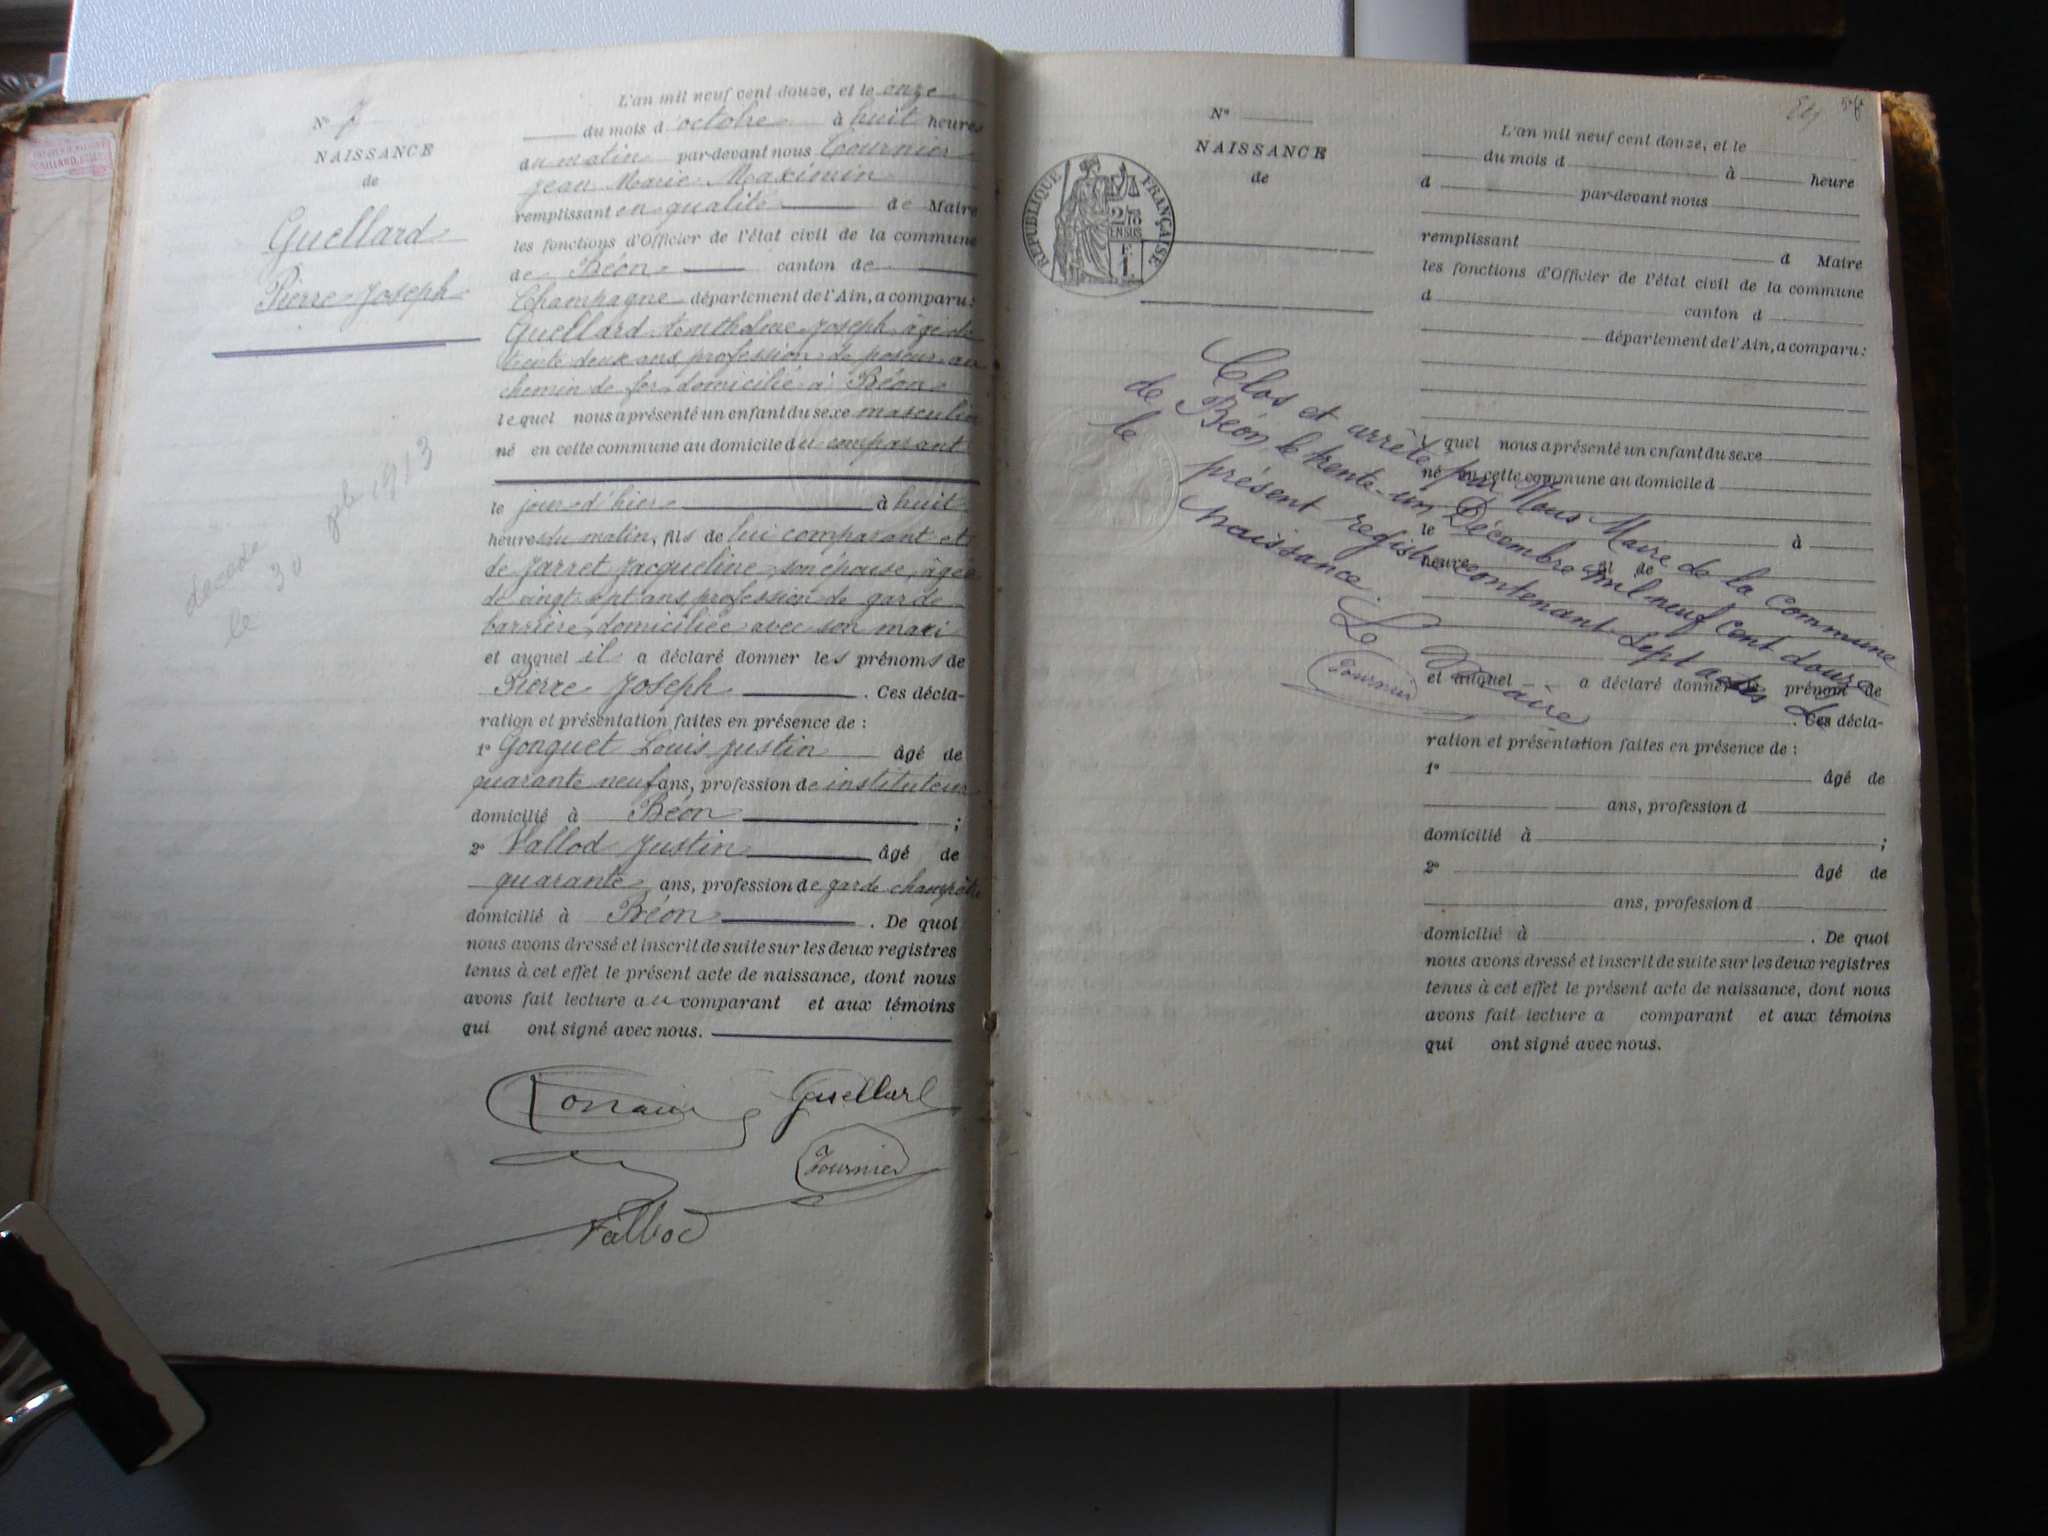 N° 7
NAISSANCE
de
Guellard
Pierre Joseph
décédé
le 30 1913
L'an mil neuf cent douze, et le onze
du mois d'octobre à huit heures
du matin par-devant nous Tournier
Jean Marie Maximin
remplissant en qualité de Maire
les fonctions d'Officier de l'état civil de la commune
de Béon canton de
Champagne département de l'Ain, a comparu :
Guellard Joseph, âgé de
trente deux ans, profession de poseur au
chemin de fer domicilié à Béon
lequel nous a présenté un enfant du sexe masculin
né en cette commune au domicile du comparant
le jour d'hier à huit
heures du matin, fils de lui comparant et
de Jarret Jacqueline, son épouse, âgée
de vingt sept ans, profession de garde
barrière, domiciliée avec son mari
et auquel il a déclaré donner les prénoms de
Pierre Joseph . Ces décla-
ration et présentation faites en présence de :
1° Gonguet Louis Justin âgé de
quarante neuf ans, profession de instituteur
domicilié à Béon ;
2° Vallod Justin âgé de
quarante ans, profession de garde champêtre
domicilié à Béon . De quoi
nous avons dressé et inscrit de suite sur les deux registres
tenus à cet effet le présent acte de naissance, dont nous
avons fait lecture au comparant et aux témoins
qui ont signé avec nous.
Guellard
Tournier
Vallod
58
N°
NAISSANCE
de
RÉPUBLIQUE FRANÇAISE
2/10
EN SUS
1
F.
L'an mil neuf cent douze, et le
du mois d à heure
d par-devant nous
remplissant d Maire
les fonctions d'Officier de l'état civil de la commune
d canton d
département de l'Ain, a comparu :
quel nous a présenté un enfant du sexe
né en cette commune au domicile d
le à
heure fil de
et auquel a déclaré donner le prénom de
. Ces décla-
ration et présentation faites en présence de :
1° âgé de
ans, profession d
domicilié à ;
2° âgé de
ans, profession d
domicilié à . De quoi
nous avons dressé et inscrit de suite sur les deux registres
tenus à cet effet le présent acte de naissance, dont nous
avons fait lecture a comparant et aux témoins
qui ont signé avec nous.
Clos et arrêté par Nous Maire de la Commune
de Béon, le trente-un Décembre mil neuf cent douze
le présent registre contenant Sept actes de
naissance.
Le Maire
Tournier